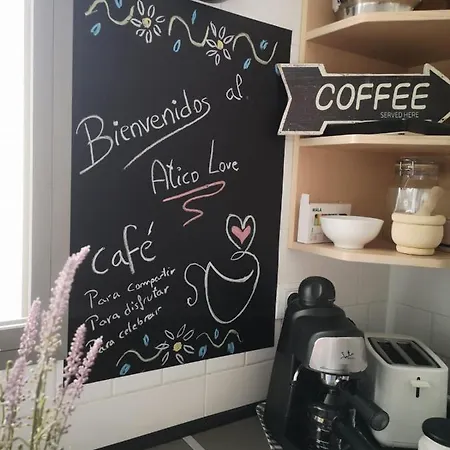 Bienvenidos al
Atico Love
café
Para compartir
Para disfrutar
Para celebrar
COFFEE
SERVED HERE